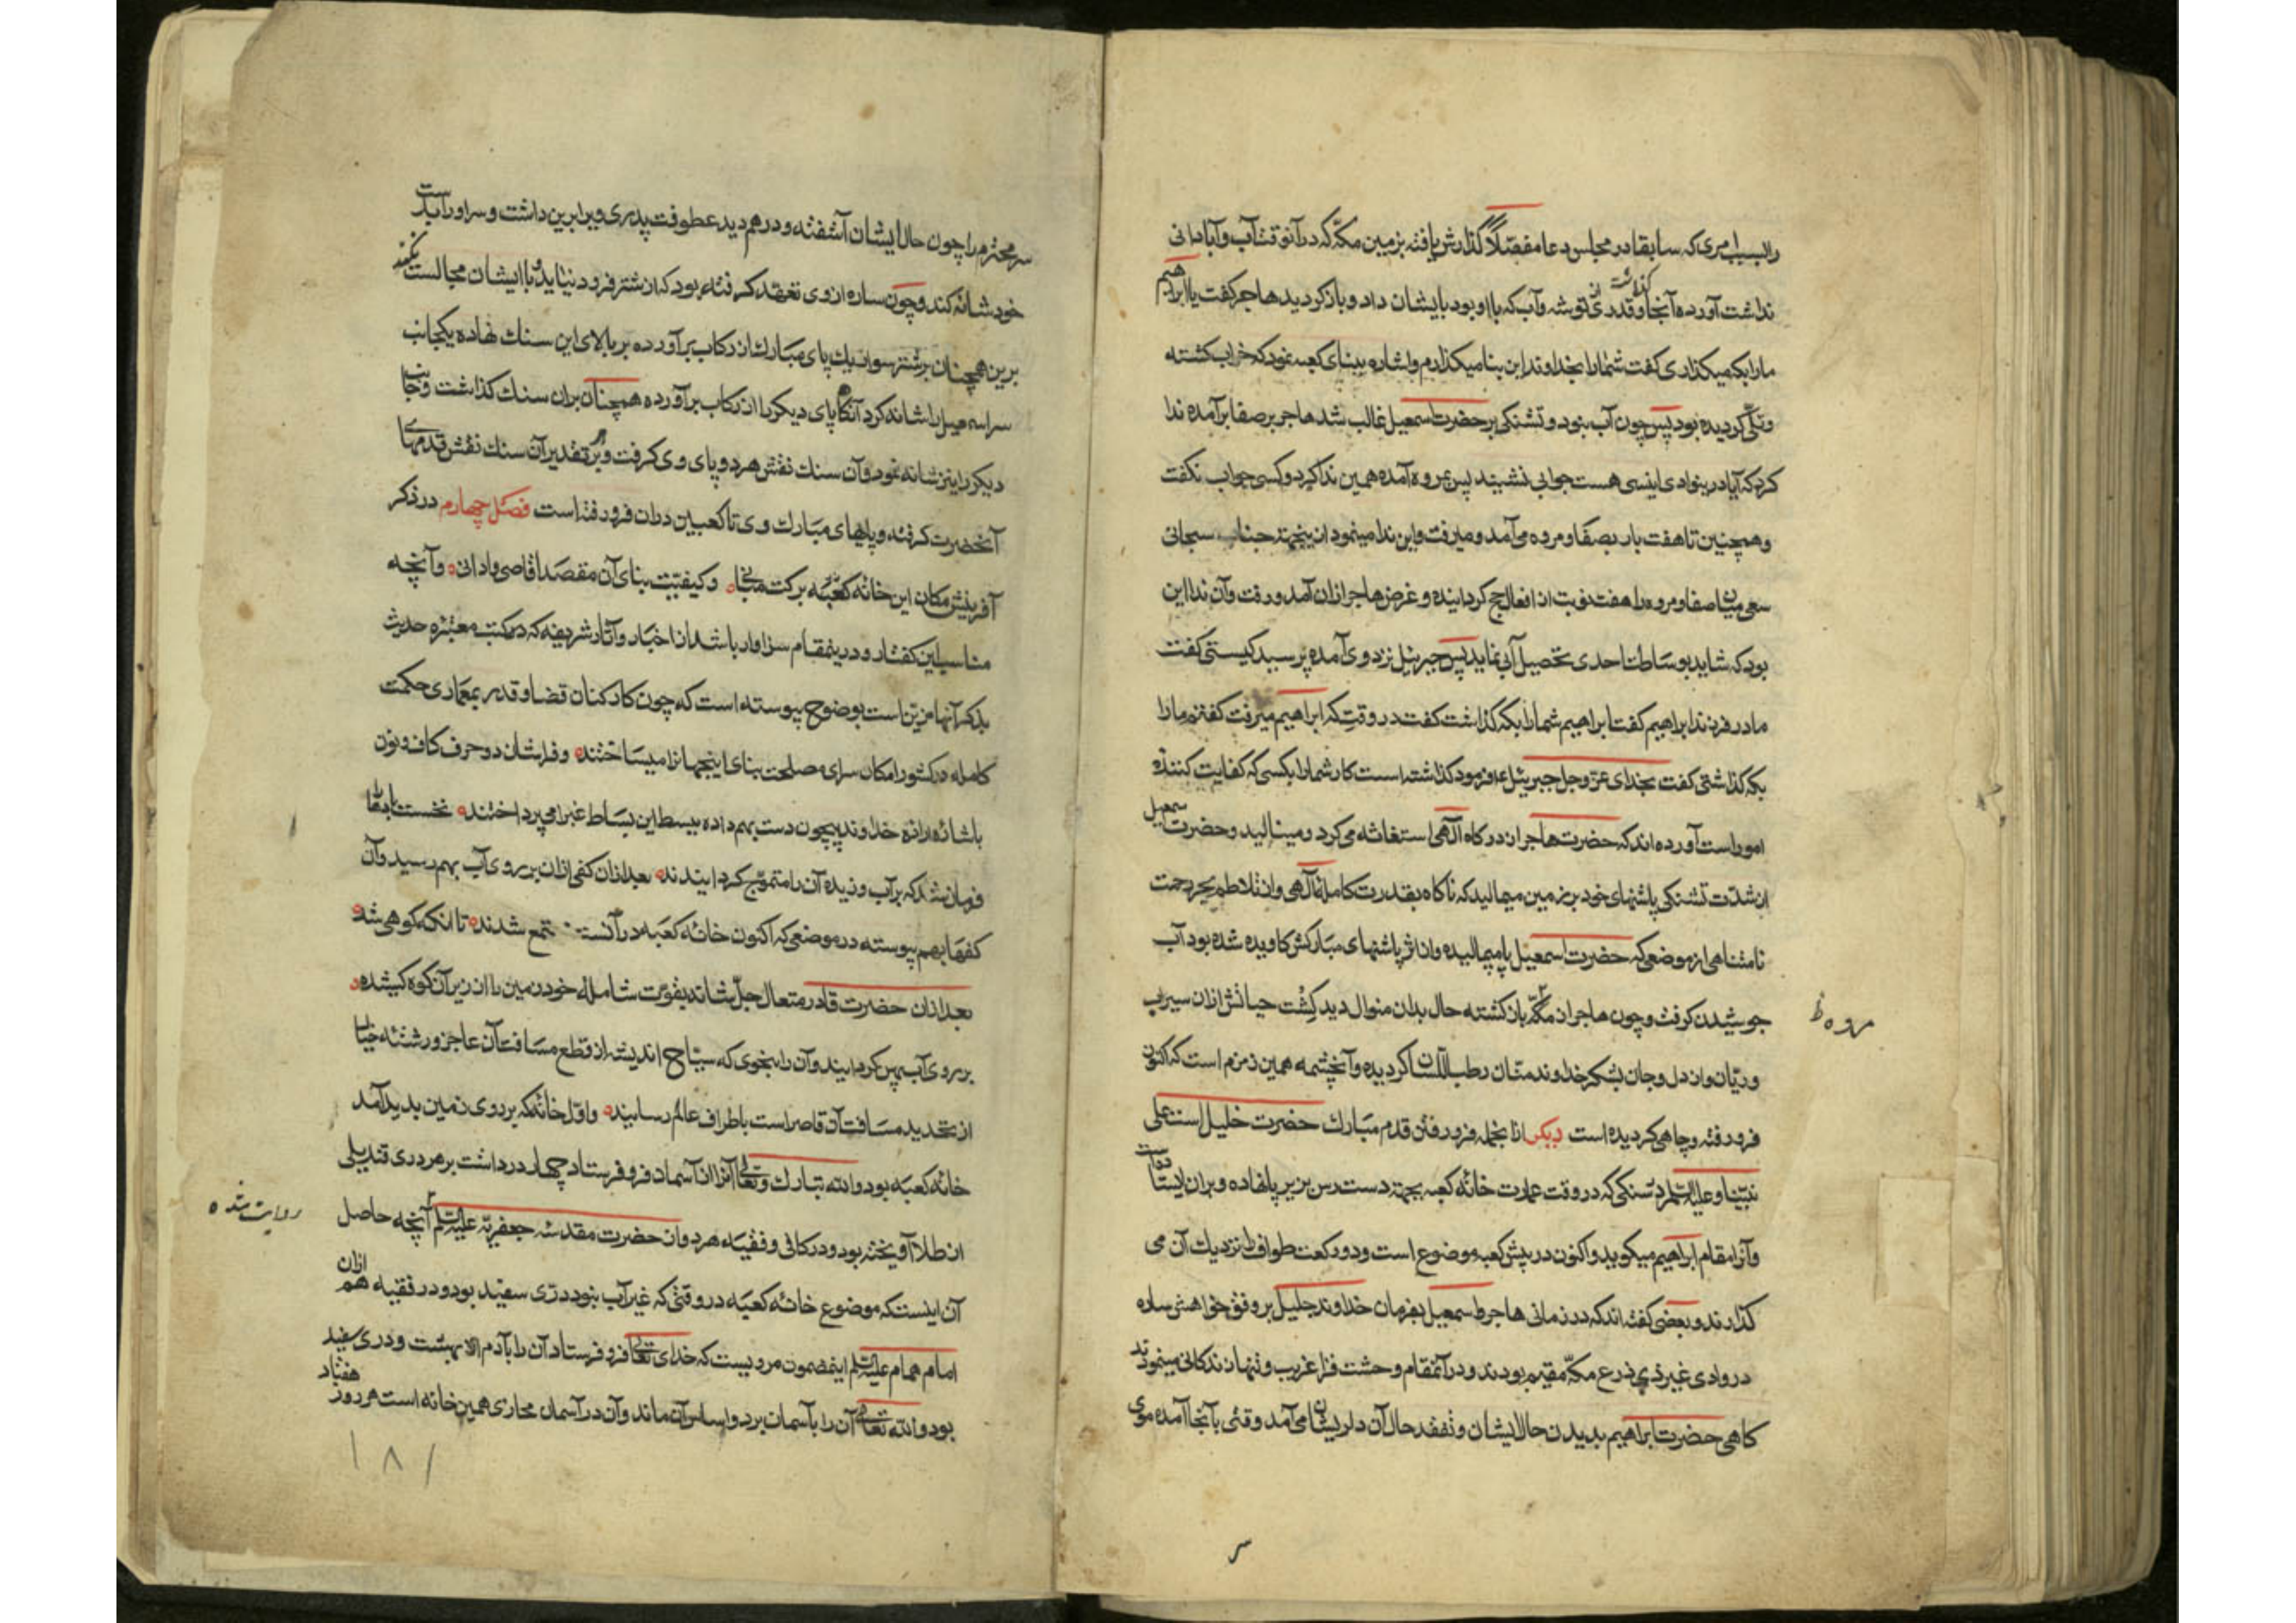 را بسبب امری که سابقا در مجلس دعا مفصّلاً گذارش یافته بزمین مکّه که در آنوقت آب و آبادانی
نداشت آورده آنجا گذاشت و قدری از توشه و آب که با او بود بایشان داد و باز گردید هاجر گفت یا ابراهیم
ما را بکه میگذاری گفت شما را بخداوند این بنا میگذارم و اشاره ببنای کعبه نمود که خراب گشته
و تلّی گردیده بود پس چون آب نبود و تشنگی بر حضرت اسمعیل غالب شد هاجر بر صفا برآمده ندا
کرد که آیا درینوادی انیسی هست جوابی نشنید پس بمروه آمده همین ندا کرد و کسی جواب نگفت
و همچنین تا هفت بار بصفا و مروه می‌آمد و میرفت و این ندا مینمود ازینجهت جناب سبحانی
سعی میان صفا و مروه را هفت نوبت از افعال حج گردانیده و غرض هاجر ازان آمد و رفت و آن ندا این
بود که شاید بوساطت احدی تحصیل آبی نماید پس جبرئیل نزد وی آمده پرسید کیستی گفت
مادر فرزند ابراهیم گفت ابراهیم شما را بکه گذاشت گفت در وقتی که ابراهیم میرفت گفتم ما را
بکه گذاشتی گفت بخدای عزّ و جل جبرئیل فرمود گذاشته است کار شما را بکسی که کفایت کننده
امور است آورده اند که حضرت هاجر از درگاه الهی استغاثه می‌کرد و مینالید و حضرت اسمعیل
از شدّت تشنگی پاشنهای خود بر زمین میمالید که ناگاه بقدرت کامله الهی و از تلاطم بحر رحمت
نامتناهی از موضعی که حضرت اسمعیل پا میمالیده و از اثر پاشنهای مبارکش کاویده شده بود آب
جوشیدن گرفت و چون هاجر از باز گشته حال بدان منوال دید کِشت حیاتش ازان سیراب
و ریّان و از دل و جان بشکر خداوند منّان رطب اللّسان گردیده و آنچشمه همین زمزم است که اکنون
فرو رفته و چاهی گردیده است دیگر ازانجمله فرو رفتن قدم مبارک حضرت خلیل است علی
نبیّنا و علیه السلام در سنگی که در وقت عمارت خانه کعبه بجهة دست رس بزیر پا نهاده و بران ایستاده است
و آنرا مقام ابراهیم میگویند و اکنون در پیش کعبه موضوع است و دو رکعت طواف را نزدیک آن می
گذارند و بعضی گفته اند که در زمانی هاجر و اسمعیل بفرمان خداوند جلیل بر وفق خواهش ساره
در وادی غیر ذی زرع مکّه مقیم بودند و در آنمقام وحشت فزا غریب و تنها زندکانی مینمودند
گاهی حضرت ابراهیم بدیدن حال ایشان و تفقد حال آن دلریشان می‌آمد وقتی بآنجا آمده موی
مروه ظ
سر محترم را چون حال ایشان آشفته و درهم دید عطوفت پدری ویرا برین داشت و سر او را بدست
خود شانه کند و چون ساره از وی تعهد گرفته بود که از شتر فرود نیاید و با ایشان مجالست نکند
برین همچنان بر شتر سوار یک پای مبارک از رکاب برآورده بر بالای این سنگ نهاده یکجانب
سر اسمعیل را شانه کرد آنگاه پای دیگر را از رکاب برآورده همچنان بران سنگ گذاشت و جانب
دیگر را نیز شانه نمود و آن سنگ نقش هر دو پای وی گرفت و بر هر تقدیر آن سنگ نقش قدمهای
آنحضرت گرفته و پاهای مبارک وی تا کعبین دران فرو رفته است فصل چهارم در ذکر
آفرینش مکان این خانه کعبه برکت و کیفیّت بنای آن مقصد اقاصی و ادانی و آنچه
مناسب این گفتار و درینمقام سزاوار باشد از اخبار و آثار شریفه که در کتب معتبره حدیث
بذکر آنها مزیّن است بوضوح پیوسته است که چون کارکنان قضا و قدر بمعماری حکمت
کامله در کشور امکان سرای مصلحت بنای اینجهانرا میساختند و فراشان دو حرف کاف و نون
باشاره اراده خداوند بیچون دست بهم داده ببسط این بساط غبرا می‌پرداختند نخست
فرمان شد که بر آب وزیده آن را متموّج گردانیدند بعد ازان کفی ازان بر روی آب بهم رسید و آن
کفها بهم پیوسته در موضعی که اکنون خانه کعبه در آنست شدند تا انکه کوهی شد
بعد ازان حضرت قادر متعال جلّ شانه بقوّت شامله خود زمین را از زیر آن کوه کشیده
بر روی آب پهن گردانیدند و آن را بنحوی که سیّاح اندیشه از قطع مسافت آن عاجز و رشته خیال
از تحدید مسافت آن قاصر است باطراف عالم رسانیند و اوّل خانه که بر روی زمین بدید آمد
خانه کعبه بود و الله تبارک و تعالی آنرا از آسمان فرو فرستاد چهار در داشت بر هر دری قندیلی
از طلا آویخته بود و در کافی و فقیه هر دو از حضرت مقدسه جعفریه علیه السلام آنچه حاصل
آن اینست که موضوع خانه کعبه در وقتی که غیر آب نبود درّی سفید بود و در فقیه هم ازان
امام همام علیه السلام اینمضمون مرویست که خدای تعالی فرو فرستاد آن را بآدم از بهشت و دری سفید
بود و الله تعالی آن را بآسمان برد و اساس آن ماند و آن در آسمان محاذی همین خانه است هر روز هفتاد
روایت شده
١٨١